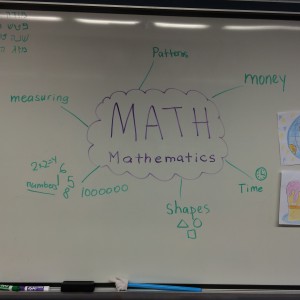 Patterns
money
measuring
MATH
Mathematics
2+2=4
numbers
1
6
5
8
1000000
Time
Shapes